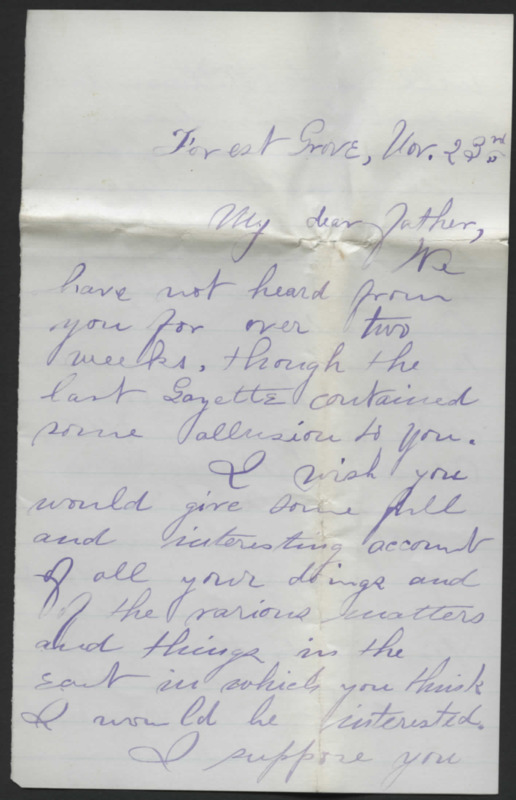 Forest Grove, Nov. 23rd
My dear father,
We
have not heard from
you for over two
weeks, though the
last Gazette contained
some allusion to you.
I wish you
would give some full
and interesting account
of all your doings and
of the various matters
and things in the
east in which you think
I would be interested.
I suppose you